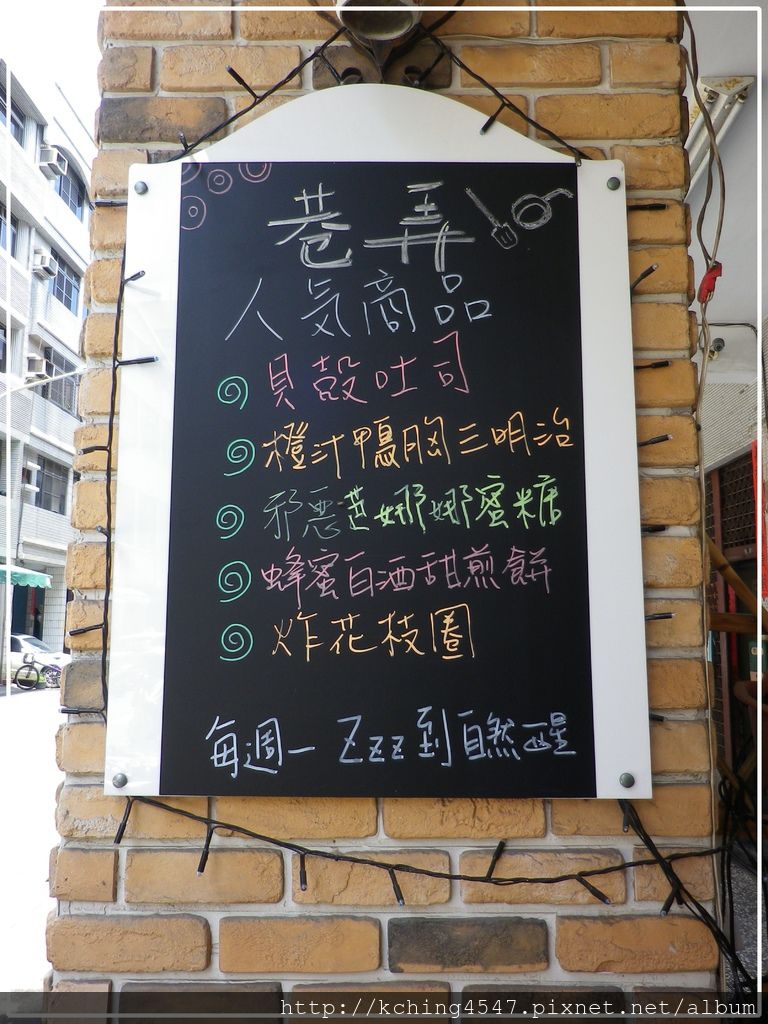 巷弄
人気商品
貝殼吐司
橙汁鴨胸三明治
邪惡芭娜娜蜜糖
蜂蜜百酒甜煎餅
炸花枝圈
每週一 Zzz到自然醒
http://kching4547.pixnet.net/album